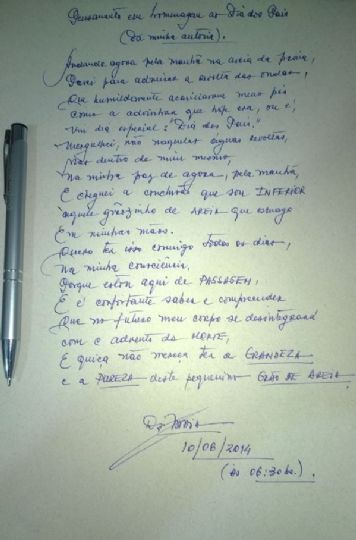 Pensamento em homenagem ao Dia dos Pais
(da minha autoria).
Andando agora pela manhã na areia da praia,
Parei para admirar a revolta das ondas,
Que humildemente acariciavam meus pés
Como a adivinhar que hoje era, ou é,
Um dia especial: "Dia dos Pais."
Mergulhei, não naquelas águas revoltas,
Mas dentro de mim mesmo,
Na minha paz de agora, pela manhã,
E cheguei a conclusão que sou INFERIOR
àquele grãozinho de AREIA que esmago
Em minhas mãos.
Quero ter isso comigo todos os dias,
Na minha consciência,
Porque estou aqui de PASSAGEM,
E é confortante saber e compreender
Que no futuro meu corpo se desintegrará
com o advento da MORTE,
E quiçá não mereça ter a GRANDEZA
e a PUREZA deste pequenino GRÃO DE AREIA.
10/08/2014
(às 06:30hs.).